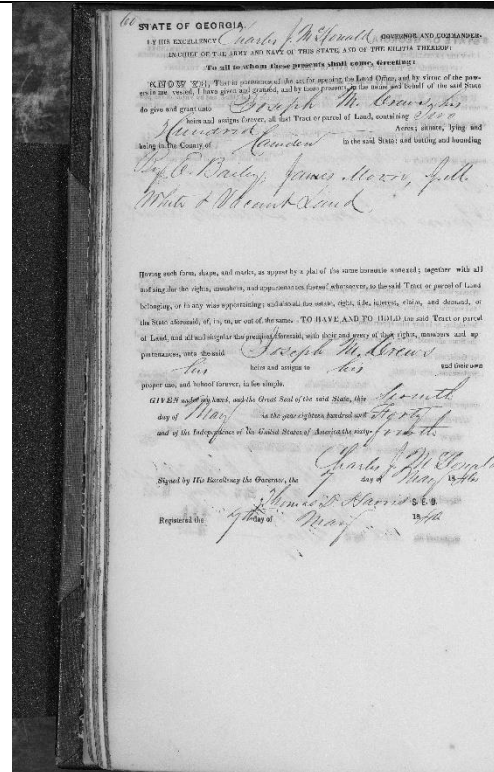 60
STATE OF GEORGIA.
BY HIS EXCELLENCY Charles J. McDonald GOVERNOR AND COMMANDER-
IN-CHIEF OF THE ARMY AND NAVY OF THIS STATE, AND OF THE MILITIA THEREOF:
To all to whom these presents shall come, Greeting:
KNOW YE, That in pursuance of the act for opening the Land Office, and by virtue of the pow-
ers in me vested, I have given and granted, and by these presents, in the name and behalf of the said State
do give and grant unto Joseph M. Crews, his
heirs and assigns forever, all that Tract or parcel of Land, containing Two
Hundred Acres; situate, lying and
being in the County of Camden in the said State: and butting and bounding
By E. Bailey, James Moore, J. M.
White & Vacant Land
Having such form, shape, and marks, as appear by a plat of the same hereunto annexed; together with all
and singular the rights, members, and appurtenances thereof whatsoever, to the said Tract or parcel of Land
belonging, or in any wise appertaining; and also all the estate, right, title, interest, claim, and demand, of
the State aforesaid, of, in, to, or out of the same. TO HAVE AND TO HOLD the said Tract or parcel
of Land, and all and singular the premises aforesaid, with their and every of their rights, members and ap
purtenances, unto the said Joseph M. Crews
his heirs and assigns to his and their own
proper use, and behoof forever, in fee simple.
GIVEN under my hand, and the Great Seal of the said State, this Seventh
day of May in the year eighteen hundred and Forty
and of the Independence of the United States of America the sixty-fourth
Charles J. McDonald
Signed by His Excellency the Governor, the 7 day of May 1840
Thomas D Harris S. E. D.
Registered the 7th day of May 1840